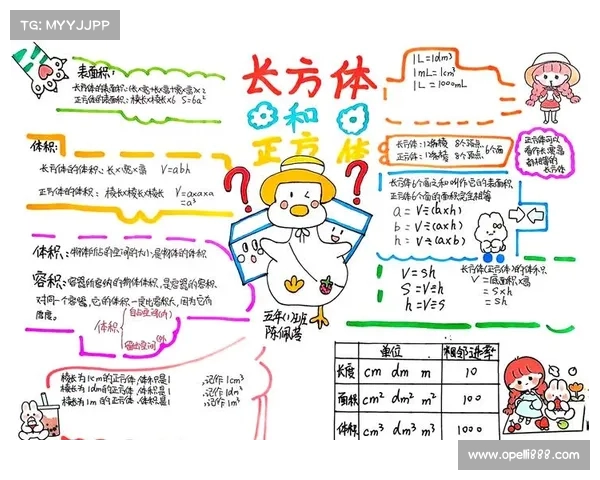 TG: MYYJJPP
表面积:
长方体的表面积:(长×宽+长×高+宽×高)×2
正方体的表面积:棱长×棱长×6 S=6a²
长方体
和
正方体
1L=1dm³
1mL=1cm³
1L=1000mL
长方体:12条棱 8个顶点
正方体:12条棱 8个顶点
6个面
正方体可以
看作长宽高
都相等的
长方体
体积:
长方体的体积:长×宽×高 V=abh
正方体的体积:棱长×棱长×棱长 V=a×a×a
=a³
? ?
长方体6个面之和叫作它的表面积.
正方体6个面的面积完全相等
a=V÷(b×h)
b=V÷(a×h)
h=V÷(a×b)
体积:物体所占的空间的大小,是物体的体积.
容积:容器所容纳的物体体积,是容器的容积.
对同一个容器,它的体积一定比容积大,因为它有
厚度.
体积
V=sh
S=V÷h
h=V÷S
长方体(正方体)的体积
V=底面积×高
=S×h
=sh
五年(1)班
棱长为1cm的正方体,体积是1 记作1cm³
棱长为1dm的正方体,体积是1 记作1dm³
棱长为1m的正方体,体积是1 记作1m³
单位 相邻进率
长度 cm dm m 10
面积 cm² dm² m² 100
体积 cm³ dm³ m³ 1000
www.opelli888.com